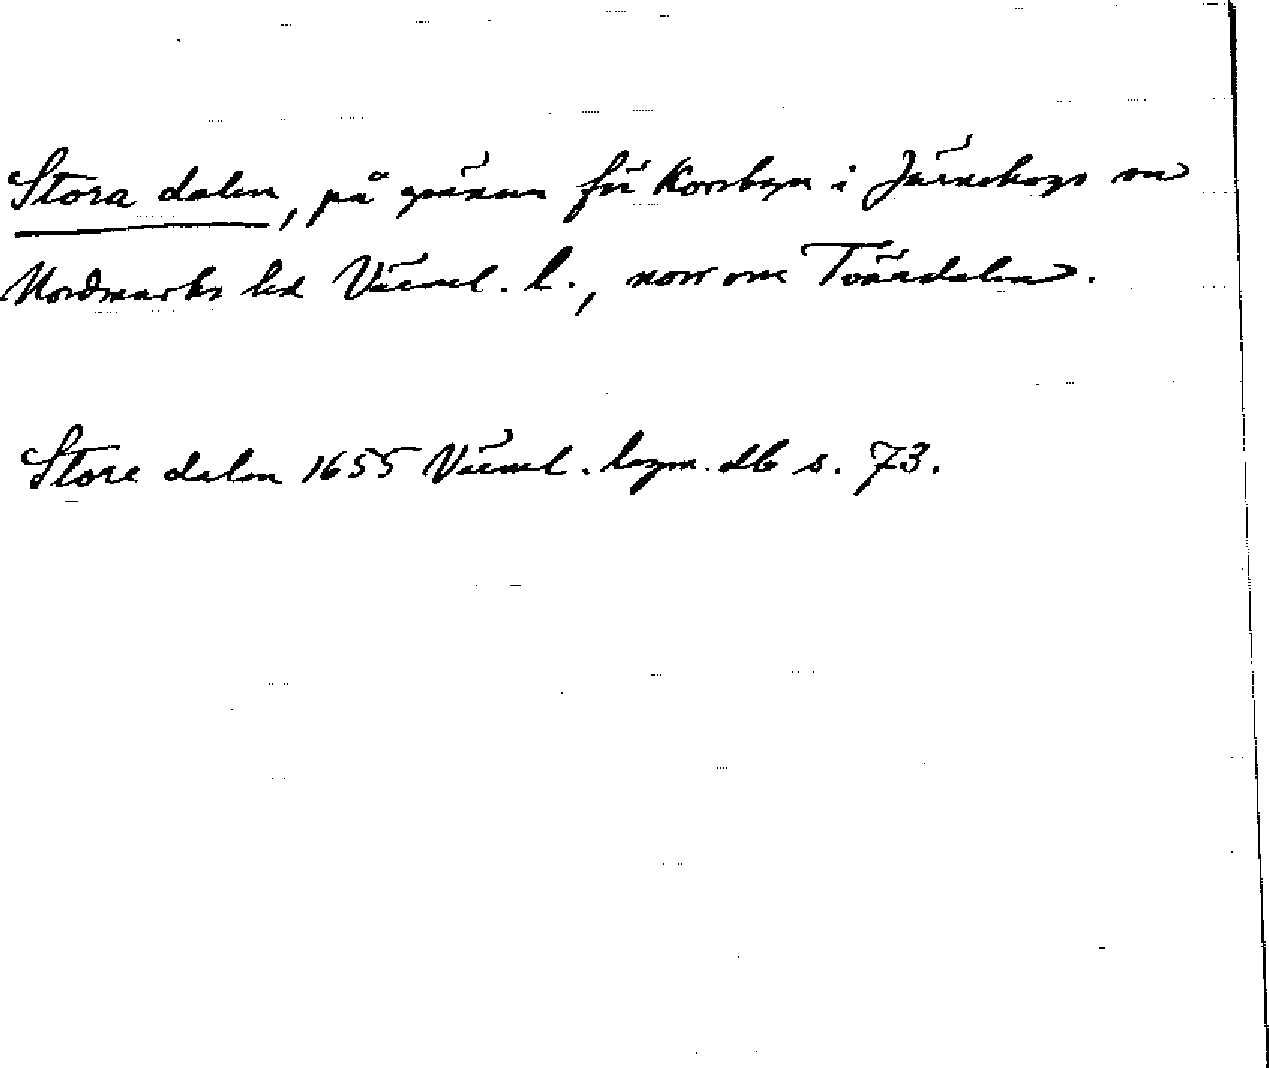 Stora dalen, på gränsen för Korsbyn i Järnskogs sn
Nordmarks hd Värml. l., norr om Tvärdalen.
Store dalen 1655 Värml. lagm. db s. 73.